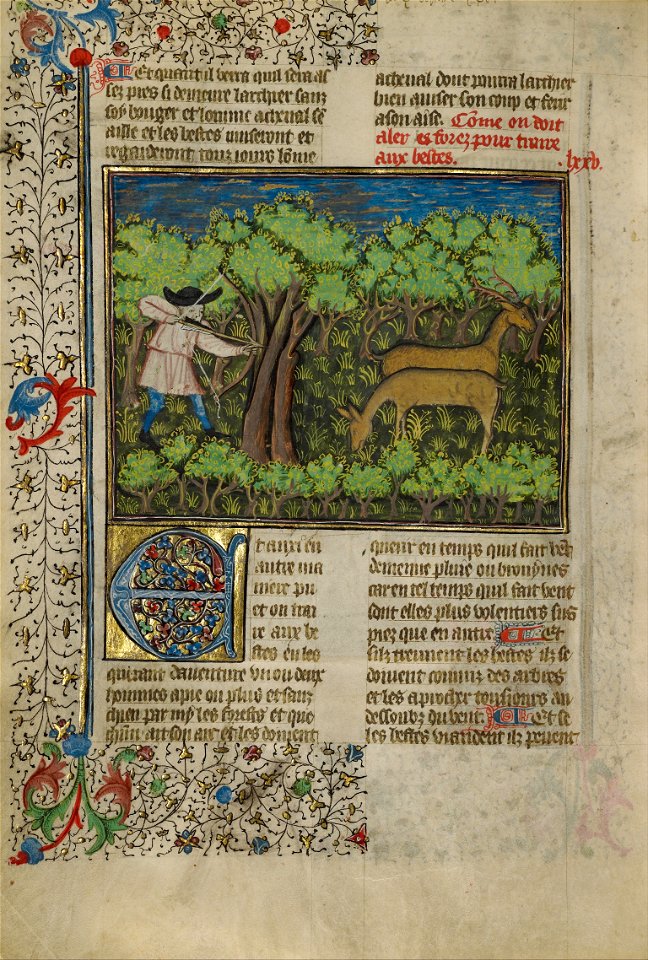 Et quant il verra quil sera as
sez pres si demeure larchier sanz
soy bouger et lomme acheual se
aille et les bestes museront et
regarderont touz iours lõme
acheual dont pourra larchier
bien auiser son coup et ferir
a son aise. Cõme on doit
aler es forez pour traire
aux bestes. lxxb.
Et aussi en
autre ma
niere pu
et on trai
re aux be
stes en les
querant dauenture vn ou deux
hommes a pie ou plus et sanz
chien par my les forests et que
chũn ait son arc et les doiuent
querir en temps quil fait vẽt
demenue pluie ou bruynes
car en tel temps quil fait vent
sont elles plus volentiers sus
piez que en autre. Et
silz treuuent les bestes ilz se
doiuent couurir des arbres
et les aprochier tousiours au
dessoubz du vent. Et se
les bestes viandent ilz peuent